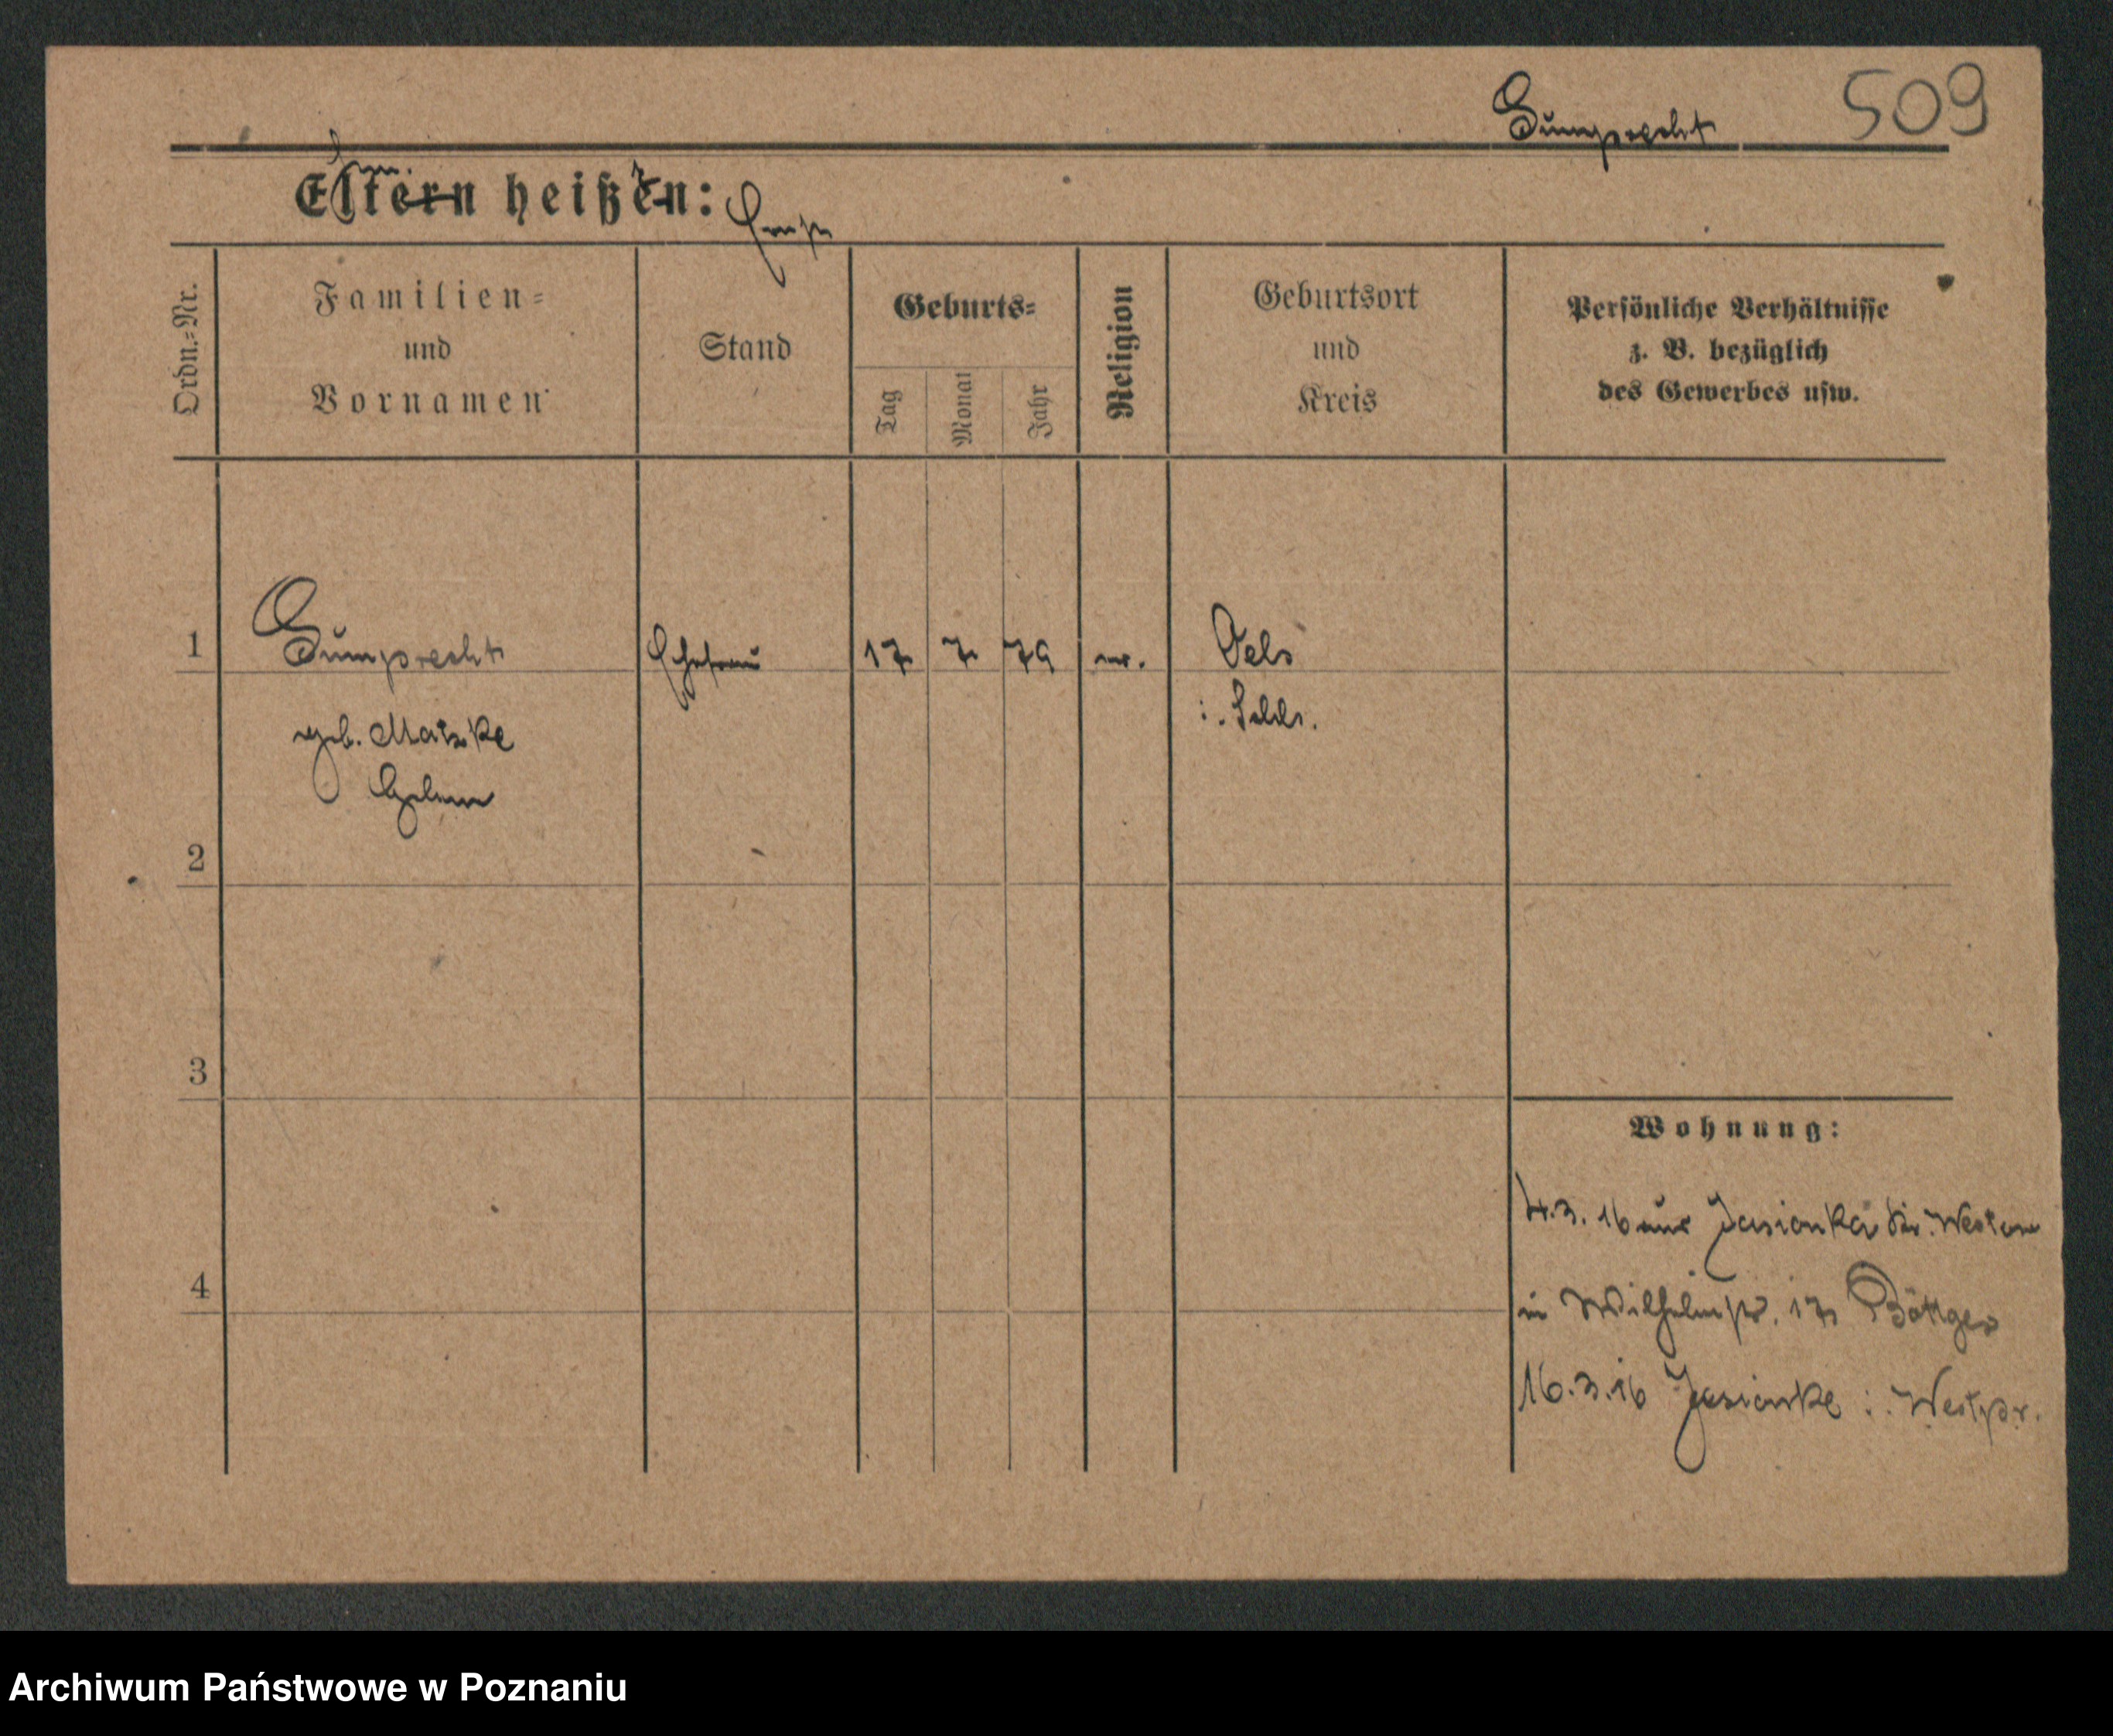 Gumprecht 509
Eltern heißen:
Ordn.=Nr.
Familien=
und
Vornamen
Stand
Geburts=
Tag
Monat
Jahr
Religion
Geburtsort
und
Kreis
Persönliche Verhältnisse
z. B. bezüglich
des Gewerbes usw.
1 Gumprecht Ehefrau 17 7 79 ev. Oels
geb. Matzke i. Schls.
Helene
2
3
4
Wohnung:
4.3.16 aus Jasionka
in Wilhelmstr. 17 Böttger
16.3.16 Jasionke i. Westpr.
Archiwum Państwowe w Poznaniu